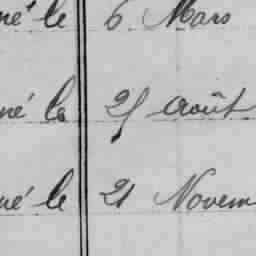 né le 6 Mars
né le 25 Août
né le 21 Novem